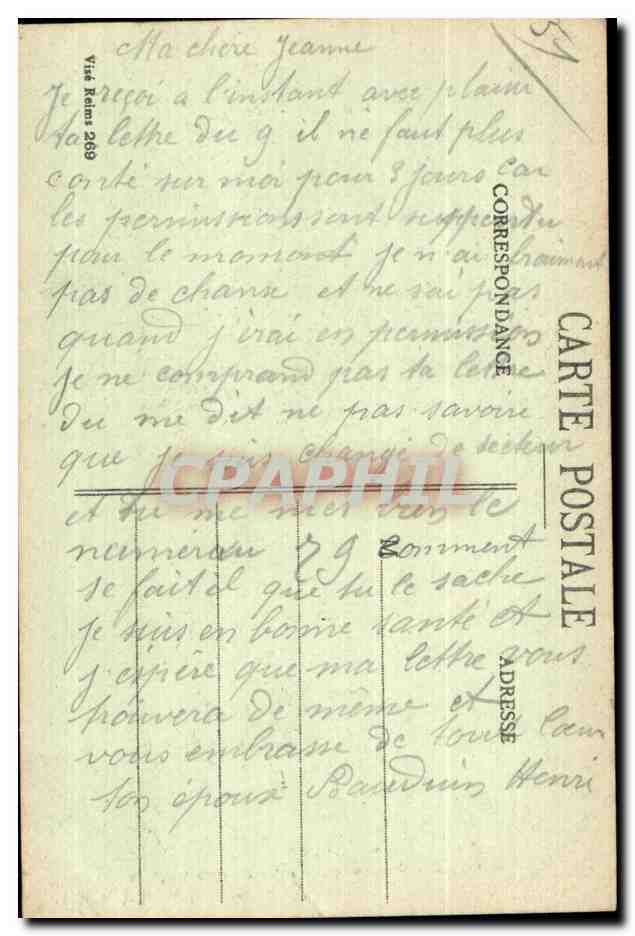 51
Ma chère Jeanne
Je reçoi a l'instant avec plaisir
ta lettre du 9 il ne faut plus
conté sur moi pour 8 jours car
les permissions sont suspendu
pour le moment je n'ai vraiment
pas de chanse et ne sai pas
quand j'irai en permission
je ne comprand pas ta lettre
du me dit ne pas savoire
que je suis changé de secteur
et tu me mes bien le
numéro 79 Comment
se fait il que tu le sache
je suis en bonne santé et
j'espère que ma lettre vous
trouvera de même et
vous embrasse de tout Cœur
ton époux Bauduin Henri
Visé Reims 269
CARTE POSTALE
CORRESPONDANCE
ADRESSE
M
CPARHIL